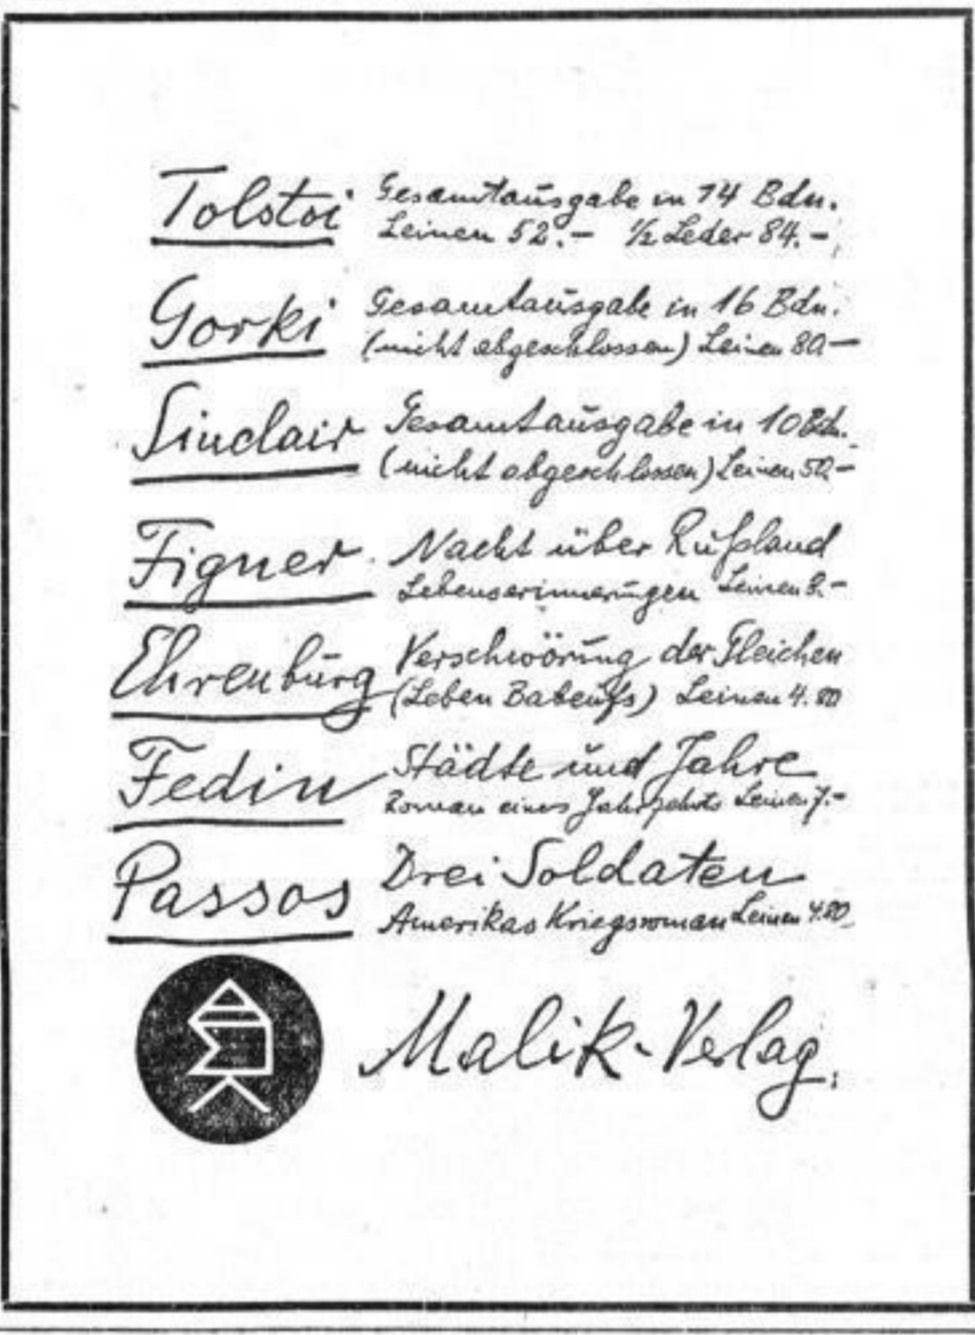 Tolstoi Gesamtausgabe in 14 Bdn.
Leinen 52.- ½ Leder 84.-
Gorki Gesamtausgabe in 16 Bdn.
(nicht abgeschlossen) Leinen 80-
Sinclair Gesamtausgabe in 10 Bdn.
(nicht abgeschlossen) Leinen 50.-
Figner Nacht über Rußland
Lebenserinnerungen Leinen 8.-
Ehrenburg Verschwörung der Gleichen
(Leben Babeufs) Leinen 4.80
Fedin Städte und Jahre
Roman eines Jahrzehnts Leinen 7.-
Passos Drei Soldaten
Amerikas Kriegsroman Leinen 4.80
Malik-Verlag